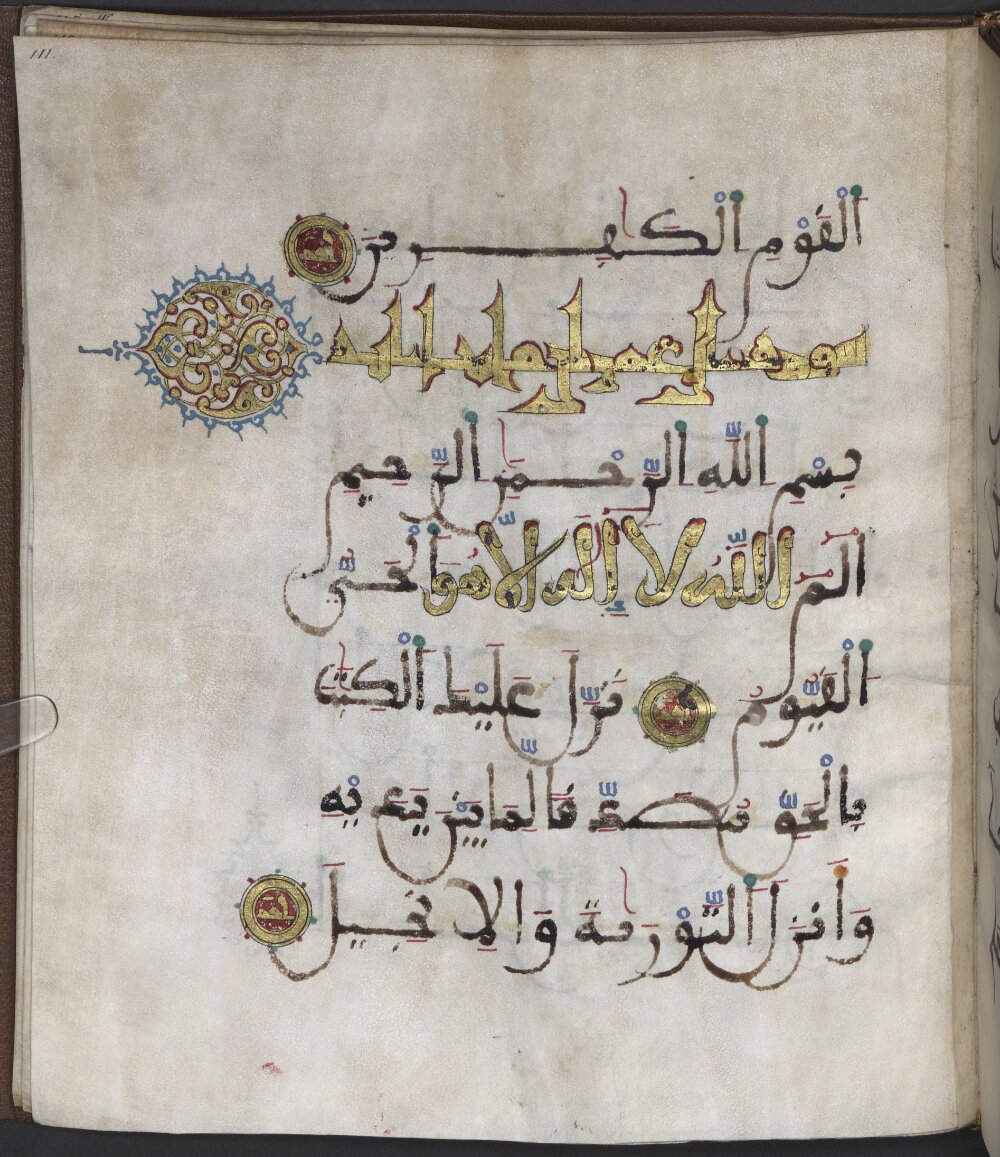 111.
الْقَوْمِ الْكَٰفِرِينَ
سورة ال عمرن
بِسْمِ اللَّهِ الرَّحْمَٰنِ الرَّحِيمِ
الٓمٓ اللَّهُ لَا إِلَٰهَ إِلَّا هُوَ الْحَيُّ
الْقَيُّومُ نَزَّلَ عَلَيْكَ الْكِتَٰبَ
بِالْحَقِّ مُصَدِّقًا لِمَا بَيْنَ يَدَيْهِ
وَأَنزَلَ التَّوْرَىٰةَ وَالْإِنجِيلَ